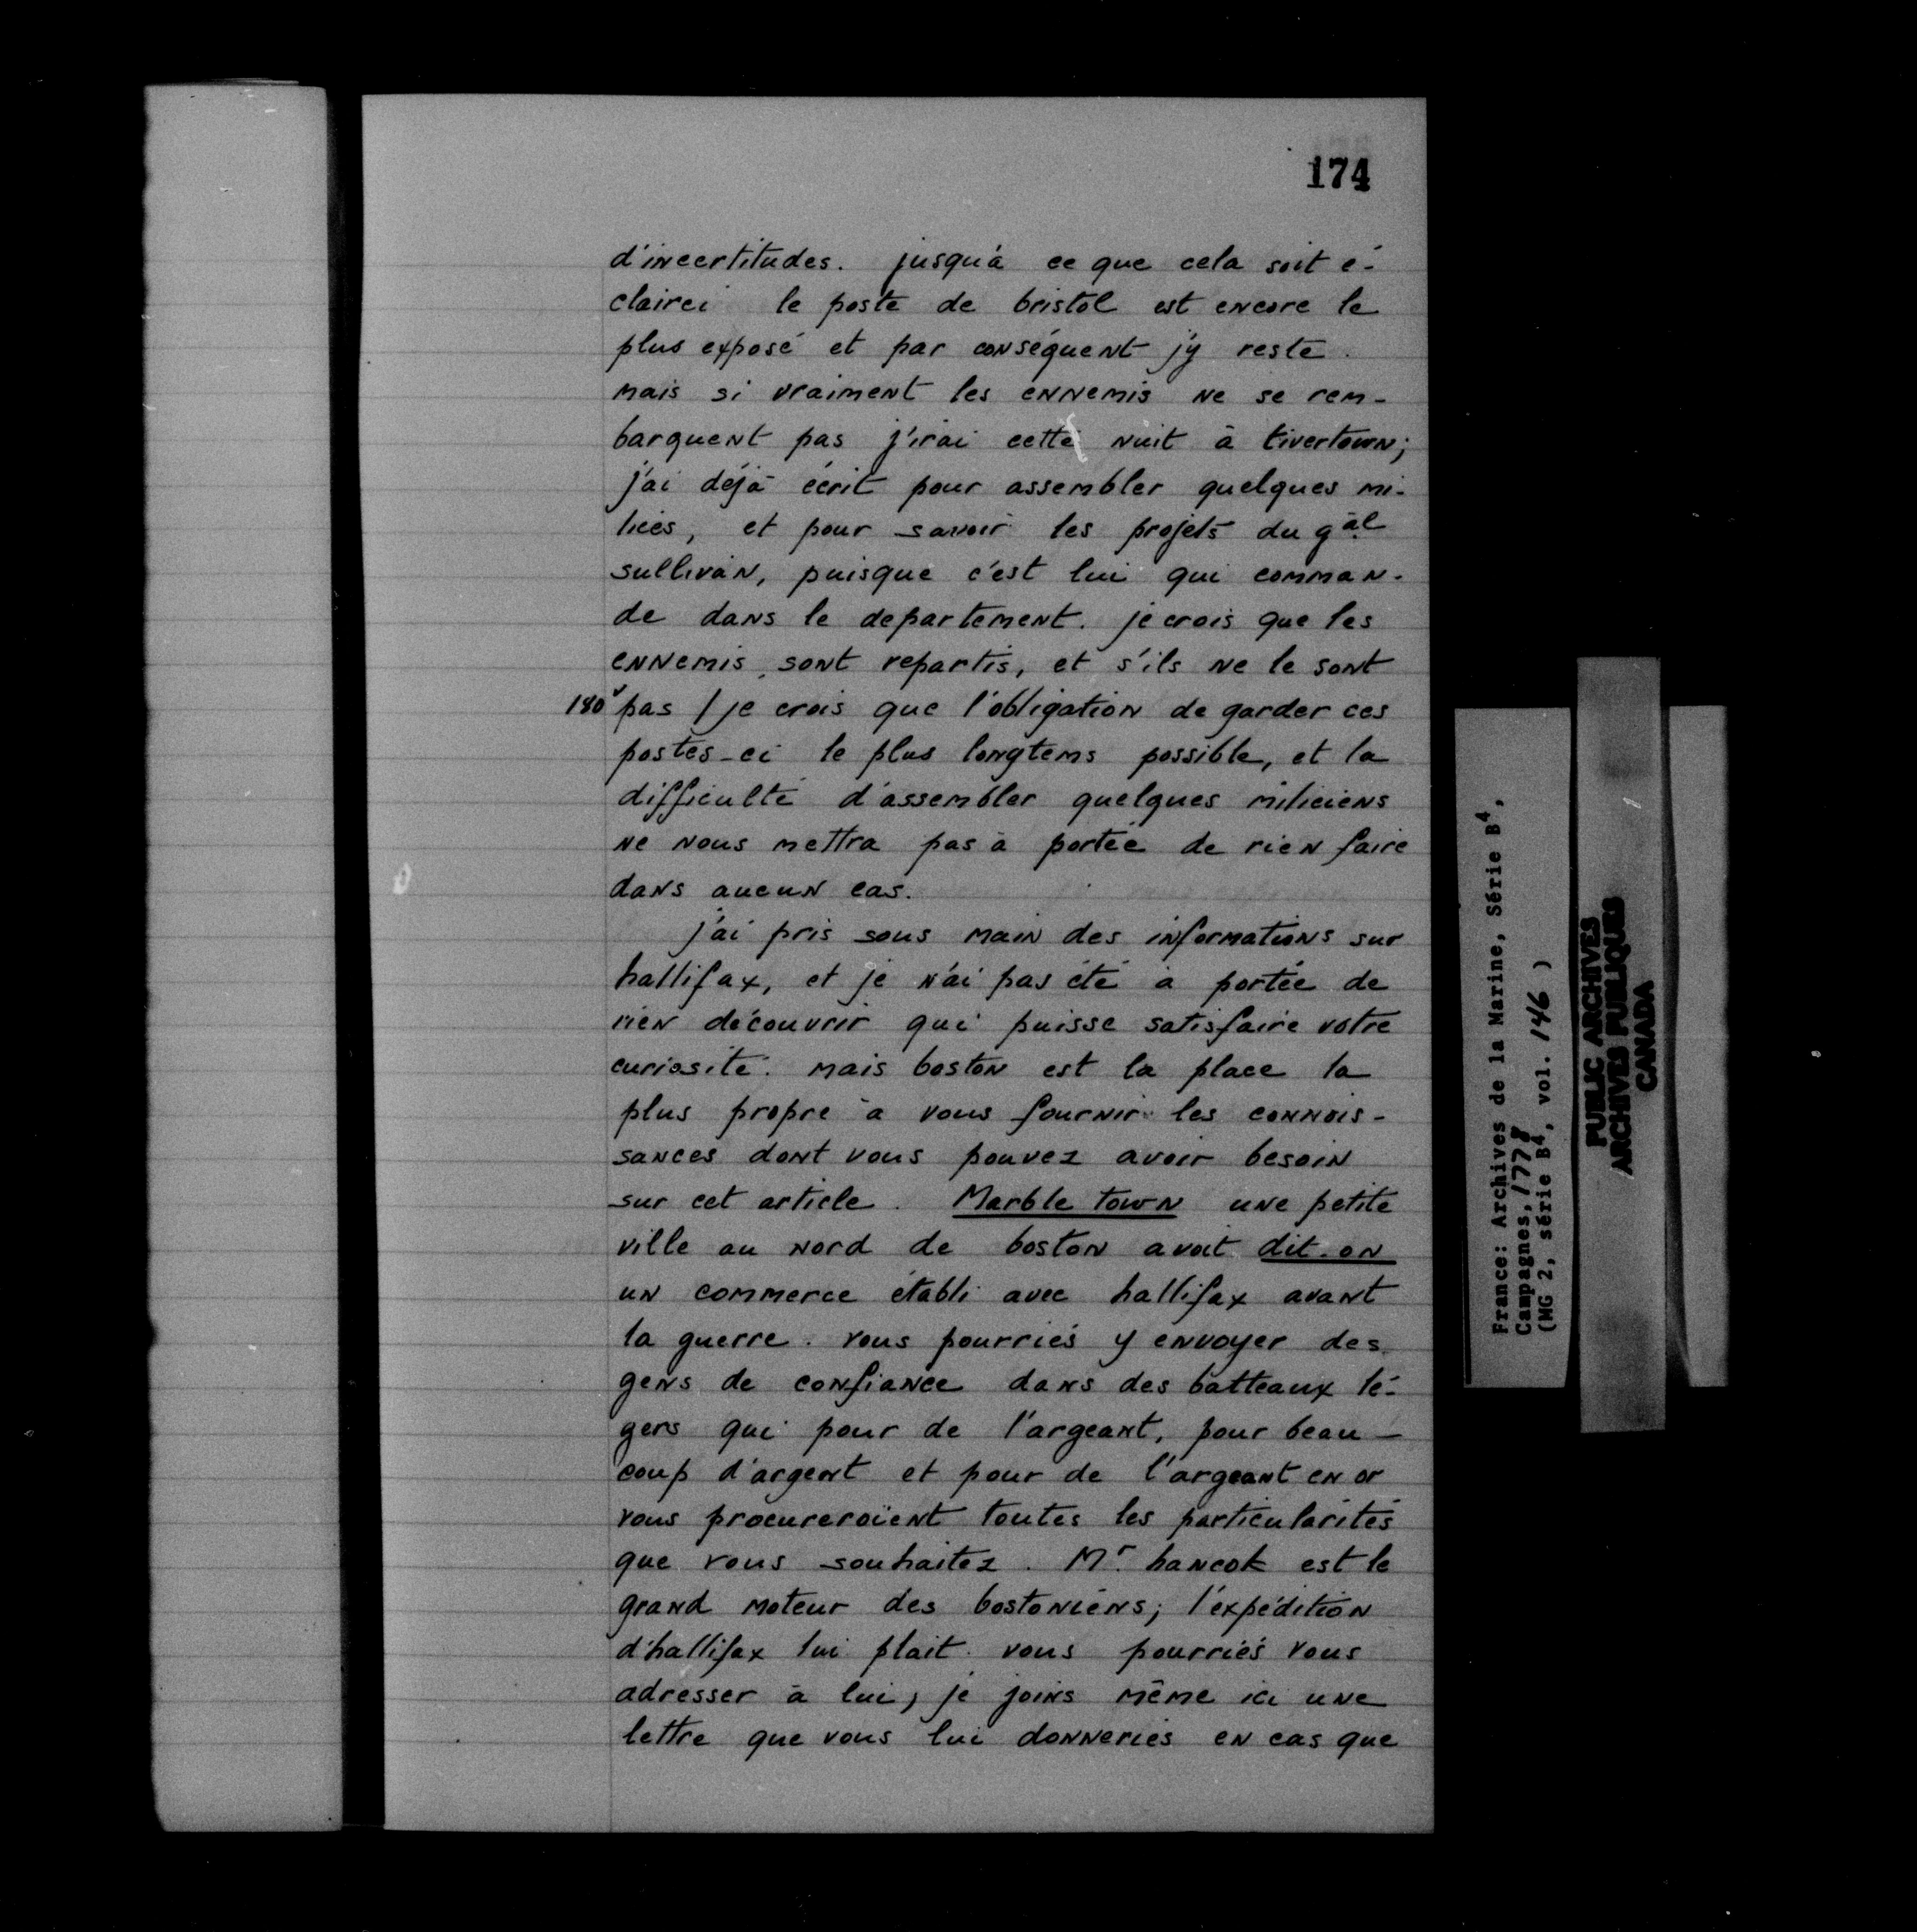 174
d'incertitudes. jusqu'à ce que cela soit é-
clairci le poste de bristol est encore le
plus exposé et par conséquent j'y reste.
mais si vraiment les ennemis ne se rem-
barquent pas j'irai cette nuit à tivertown;
j'ai déjà écrit pour assembler quelques mi-
lices, et pour savoir les projets du gāl
sullivan, puisque c'est lui qui comman-
de dans le departement. je crois que les
ennemis sont repartis, et s'ils ne le sont
180v pas / je crois que l'obligation de garder ces
postes-ci le plus longtems possible, et la
difficulté d'assembler quelques miliciens
ne nous mettra pas à portée de rien faire
dans aucun cas.
j'ai pris sous main des informations sur
hallifax, et je n'ai pas été à portée de
rien découvrir qui puisse satisfaire votre
curiosité. mais boston est la place la
plus propre à vous fournir les connois-
sances dont vous pouvez avoir besoin
sur cet article. Marble town une petite
ville au nord de boston avoit dit-on
un commerce établi avec hallifax avant
la guerre. vous pourriés y envoyer des
gens de confiance dans des batteaux lé-
gers qui pour de l'argeant, pour beau-
coup d'argent et pour de l'argeant en or
vous procureroient toutes les particularités
que vous souhaitez. Mr. hancok est le
grand moteur des bostoniens; l'expédition
d'hallifax lui plait. vous pourriés vous
adresser à lui, je joins même ici une
lettre que vous lui donneriés en cas que
France: Archives de la Marine, Série B4,
Campagnes, 1778
(MG 2, série B4, vol. 146 )
PUBLIC ARCHIVES
ARCHIVES PUBLIQUES
CANADA